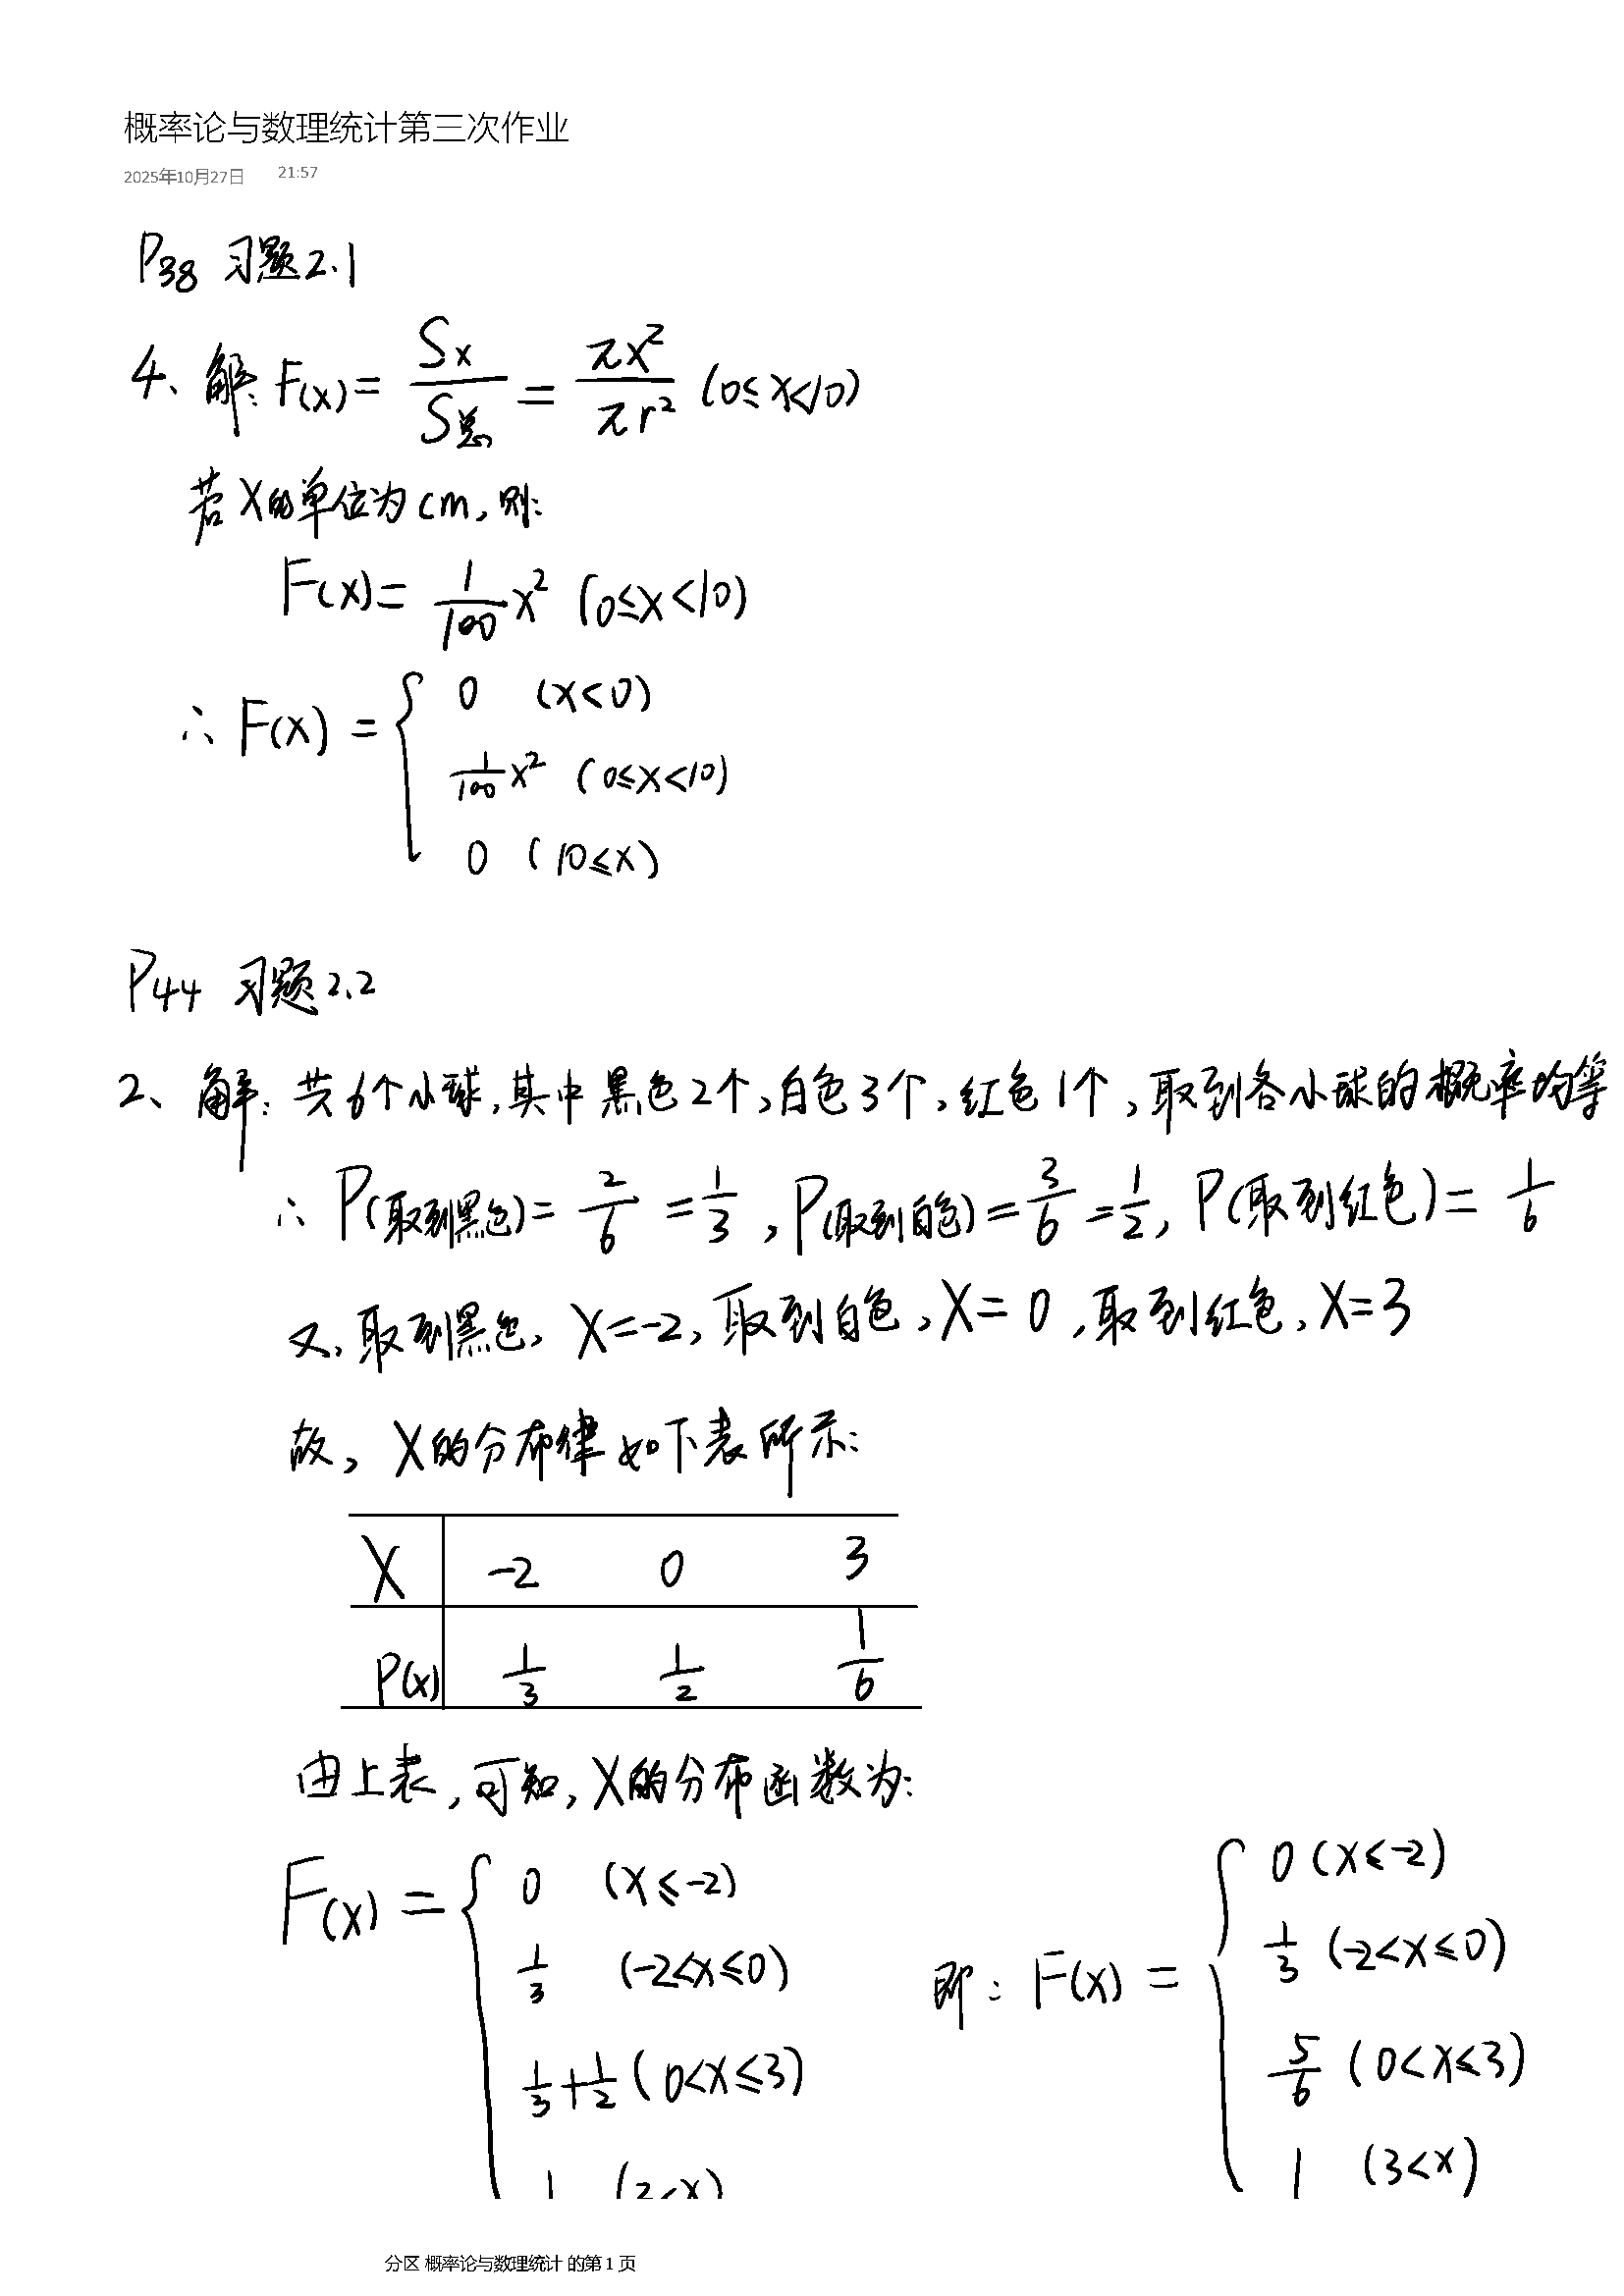 概率论与数理统计第三次作业
2025年10月27日 21:57
P38 习题2.1
4、解: F(x) = Sx/S总 = πx²/πr² (0≤x<10)
若X的单位为cm,则:
F(x) = 1/100 x² (0≤x<10)
∴ F(x) = { 0 (x<0)
1/100 x² (0≤x<10)
0 (10≤x)
P44 习题2.2
2、解: 共6个小球,其中黑色2个,白色3个,红色1个,取到各小球的概率均等
∴ P(取到黑色) = 2/6 = 1/3, P(取到白色) = 3/6 = 1/2, P(取到红色) = 1/6
又,取到黑色, X=-2, 取到白色, X=0, 取到红色, X=3
故, X的分布律如下表所示:
X -2 0 3
P(x) 1/3 1/2 1/6
由上表,可知,X的分布函数为:
F(x) = { 0 (x≤-2)
1/3 (-2<x≤0)
1/3+1/2 (0<x≤3)
1 (3<x)
即: F(x) = { 0 (x≤-2)
1/3 (-2<x≤0)
5/6 (0<x≤3)
1 (3<x)
分区 概率论与数理统计 的第 1 页